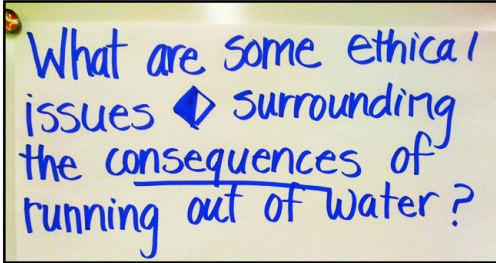 What are some ethical
issues surrounding
the consequences of
running out of water?